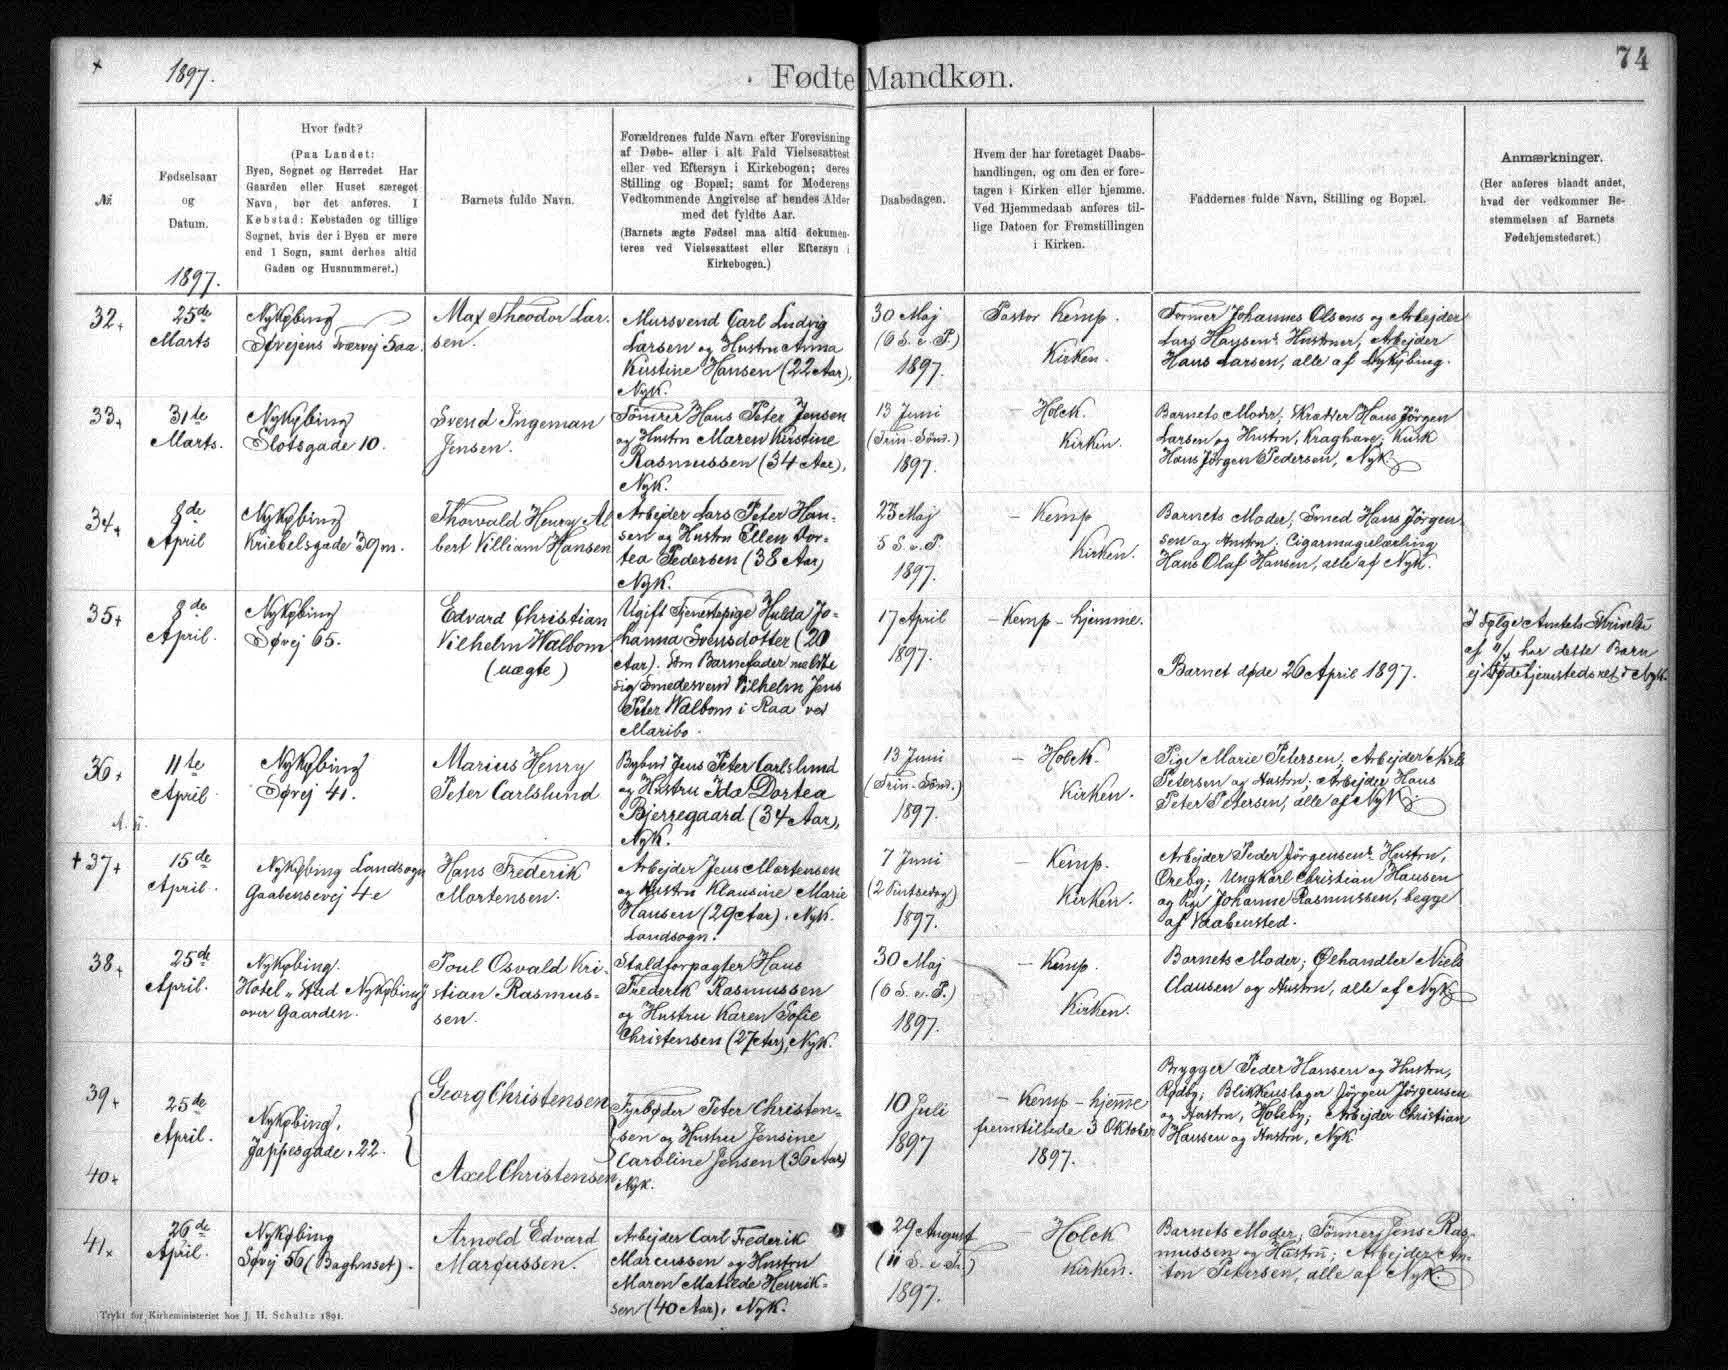 1897.
Fødte Mandkøn.
74
№.
Fødselsaar
og
Datum.
1897.
Hvor født?
(Paa Landet:
Byen, Sognet og Herredet. Har
Gaarden eller Huset særeget
Navn, bør det anføres. I
Købstad: Købstaden og tillige
Sognet, hvis der i Byen er mere
end 1 Sogn, samt derhos altid
Gaden og Husnummeret.)
Barnets fulde Navn.
Forældrenes fulde Navn efter Forevisning
af Døbe- eller i alt Fald Vielsesattest
eller ved Eftersyn i Kirkebogen; deres
Stilling og Bopæl; samt for Moderens
Vedkommende Angivelse af hendes Alder
med det fyldte Aar.
(Barnets ægte Fødsel maa altid dokumen-
teres ved Vielsesattest eller Eftersyn i
Kirkebogen.)
Daabsdagen.
Hvem der har foretaget Daabs-
handlingen, og om den er fore-
tagen i Kirken eller hjemme.
Ved Hjemmedaab anføres til-
lige Datoen for Fremstillingen
i Kirken.
Faddernes fulde Navn, Stilling og Bopæl.
Anmærkninger.
(Her anføres blandt andet,
hvad der vedkommer Be-
stemmelsen af Barnets
Fødehjemstedsret.)
32
25de
Marts
Nykøbing
Søvejens Tværvej 5aa.
Max Theodor Lar-
sen.
Mursvend Carl Ludvig
Larsen og Hustru Anna
Kirstine Hansen (22 Aar),
Nyk.
30 Maj
(6 S. e. P.)
1897.
Pastor Kemp.
Kirken.
Former Johannes Olsens og Arbejder
Lars Hansens Hustruer, Arbejder
Hans Larsen, alle af Nykøbing.
33
31te
Marts.
Nykøbing
Slotsgade 10.
Svend Ingeman
Jensen.
Tømrer Hans Peter Jensen
og Hustru Maren Kirstine
Rasmussen (34 Aar),
Nyk.
13 Juni
(Trin. Sønd.)
1897.
- Holck.
Kirken.
Barnets Moder; Skrædder Hans Jørgen
Larsen og Hustru, Kraghave; Kusk
Hans Jørgen Pedersen, Nyk.
34
8de
April
Nykøbing
Kriebelsgade 39m.
Thorvald Henry Al
bert Villiam Hansen
Arbejder Lars Peter Han-
sen og Hustru Ellen Dor-
tea Pedersen (38 Aar)
Nyk.
23 Maj
5 S. e. P.
1897.
- Kemp
Kirken.
Barnets Moder; Smed Hans Jørgen-
sen og Hustru; Cigarmagerlærling
Hans Olaf Hansen, alle af Nyk.
35
8de
April.
Nykøbing
Søvej 65.
Edvard Christian
Vilhelm Walbom
(uægte)
Ugift Tjenestepige Hulda Jo-
hanna Svensdotter (20
Aar). Som Barnefader meldte
sig Smedesvend Vilhelm Jens
Peter Walbom i Raa ved
Maribo.
17 April
1897.
- Kemp - hjemme.
Barnet døde 26 April 1897.
I Følge Amtets Skrivelse
af 11/4 har dette Barn
ej Fødehjemstedsret i Nyk.
36
11te
April
Nykøbing
Søvej 41.
Marius Henry
Peter Carlslund
Bybud Jens Peter Carlslund
og Hustru Ida Dortea
Bjerregaard (34 Aar),
Nyk.
13 Juni
(Trin. Sønd.)
1897.
- Holck.
Kirken.
Pige Marie Petersen, Arbejder Niels
Petersen og Hustru; Arbejder Hans
Peter Petersen, alle af Nyk.
37
15de
April.
Nykøbing Landsogn
Gaabensevej 4e
Hans Frederik
Mortensen.
Arbejder Jens Mortensen
og Hustru Klausine Marie
Hansen (29 Aar), Nyk.
Landsogn.
7 Juni
(2 Pintsedag)
1897.
- Kemp.
Kirken.
Arbejder Peder Jørgensens Hustru,
Øreby; Ungkarl Christian Hansen
og Pige Johanne Rasmussen, begge
af Vaabensted.
38
25de
April.
Nykøbing.
Hotel "Stad Nykøbing"
over Gaarden.
Poul Osvald Kri-
stian Rasmus-
sen.
Staldforpagter Hans
Frederik Rasmussen
og Hustru Karen Sofie
Christensen (27 Aar), Nyk.
30 Maj
(6 S. e. P.)
1897.
- Kemp.
Kirken.
Barnets Moder; Ølhandler Niels
Clausen og Hustru, alle af Nyk.
39
40
25de
April.
Nykøbing,
Jappesgade, 22.
Georg Christensen
Axel Christensen
Fyrbøder Peter Christen-
sen og Hustru Jensine
Caroline Jensen (36 Aar)
Nyk.
10 Juli
1897
- Kemp - hjeme
fremstillede 3 Oktober
1897.
Brygger Peder Hansen og Hustru,
Rødby; Blikkenslager Jørgen Jørgensen
og Hustru, Holeby; Arbejder Christian
Hansen og Hustru, Nyk.
41
26de
April.
Nykøbing
Søvej 56 (Baghuset).
Arnold Edvard
Marcussen.
Arbejder Carl Frederik
Marcussen og Hustru
Maren Matilde Henrik-
sen (40 Aar), Nyk.
29 August
(11 S. e. Tr.)
1897.
- Holck
Kirken.
Barnets Moder, Tømrer Jens Ras-
mussen og Hustru; Arbejder An-
ton Petersen, alle af Nyk.
Trykt for Kirkeministeriet hos J. H. Schultz 1891.